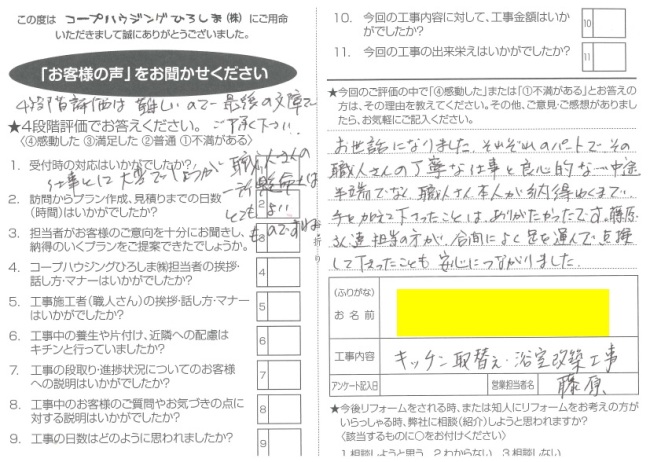 この度は コープハウジングひろしま(株) にご用命
いただきまして誠にありがとうございました。
「お客様の声」をお聞かせください
4段階評価は 難しいので 最後の文章で
★4段階評価でお答えください。 ご了承下さい.
〈④感動した ③満足した ②普通 ①不満がある〉
1. 受付時の対応はいかがでしたか?
職人さんの
仕事とは 大変でしょうが
一所懸命は
2. 訪問からプラン作成、見積りまでの日数
(時間)はいかがでしたか?
2
とても よい
ものですね
3. 担当者がお客様のご意向を十分にお聞きし、
納得のいくプランをご提案できたでしょうか。
3
4. コープハウジングひろしま㈱担当者の挨拶・
話し方・マナーはいかがでしたか?
4
5. 工事施工者(職人さん)の挨拶・話し方・マナー
はいかがでしたか?
5
6. 工事中の養生や片付け、近隣への配慮は
キチンと行っていましたか?
6
7. 工事の段取り・進捗状況についてのお客様
への説明はいかがでしたか?
7
8. 工事中のお客様のご質問やお気づきの点に
対する説明はいかがでしたか?
8
9. 工事の日数はどのように思われましたか?
9
10. 今回の工事内容に対して、工事金額はいか
がでしたか?
10
11. 今回の工事の出来栄えはいかがでしたか?
11
★今回のご評価の中で「④感動した」または「①不満がある」とお答え
の方は、その理由を教えてください。その他、ご意見・ご感想がありまし
たら、お気軽にご記入ください。
お世話になりました. それぞれのパートで その
職人さんの 丁寧な仕事と 良心的な 中途
半端でなく 職人さん本人が 納得ゆくまで.
手をかけて下さったことは、ありがたかったです. 藤原
担当の方が、合間によく足を運んで 点検
して下さったことも 安心につながりました.
(ふりがな)
お 名 前
工事内容
キッチン取替え・浴室改築工事
アンケート記入日
営業担当者名
藤原
★今後リフォームをされる時、または知人にリフォームをお考えの方が
いらっしゃる時、弊社に相談(紹介)しようと思いますか?
〈該当するものに○をお付けください〉
1.相談しようと思う 2.わからない 3.相談しない